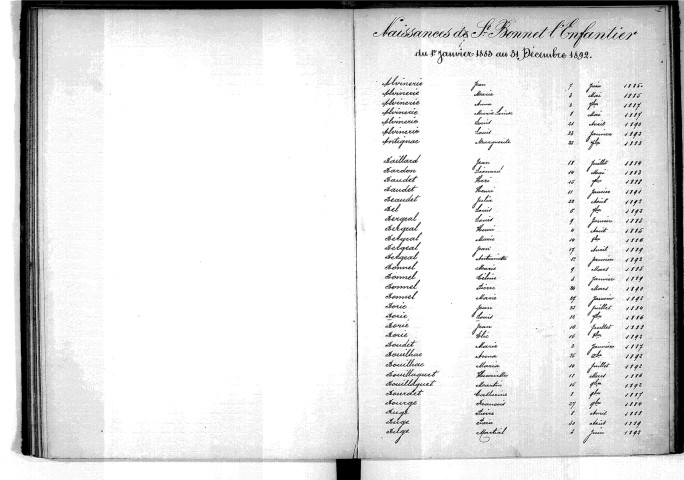 Naissances de St Bonnet l'Enfantier
du 1er Janvier 1883 au 31 Décembre 1892.
Alvinerie Jean 7 Juin 1885.
Alvinerie Marie 3 Mai 1885
Alvinerie Anna 2 1887
Alvinerie Marie Louise 1 Mai 1889
Alvinerie Louis 21 Avril 1890
Alvinerie Louis 23 Janvier 1892
Antignac Marguerite 23 1883
Baillard Jean 18 Juillet 1884
Bardon Léonard 14 Mai 1883
Baudet 15 1888
Baudet Henri 11 Janvier 1891
Beaudet Julie 22 Août 1892
Bel Louis 5 1892
Bergeal Louis 9 Janvier 1885
Bergeal Henri 4 Août 1885
Bergeal Marie 14 1886
Bergeal Jean 19 Avril 1889
Bergeal Antoinette Janvier 1892
Bonnel Marie 9 Mars 1885
Bonnel 5 Janvier 1889
Bonnel Pierre 26 Mars 1890
Bonnel Marie 27 Janvier 1892
Borie Jean 23 Juillet 1884
Borie Louis 12 1886
Borie Jean 18 Juillet 1888
Borie 18 1892
Boudet Marie 2 Janvier 1887
Bouilhac Anna 26 1892
Bouilhac Maria 14 Juillet 1892
Bouillaguet 11 Mars 1886
Bouillaguet Martin 15 1892
Bourdet Catherine 1 1887
Bourge François 27 1884
Buge Pierre 8 Avril 1888
Buge 21 Août 1889
Buge Martial 3 Juin 1892